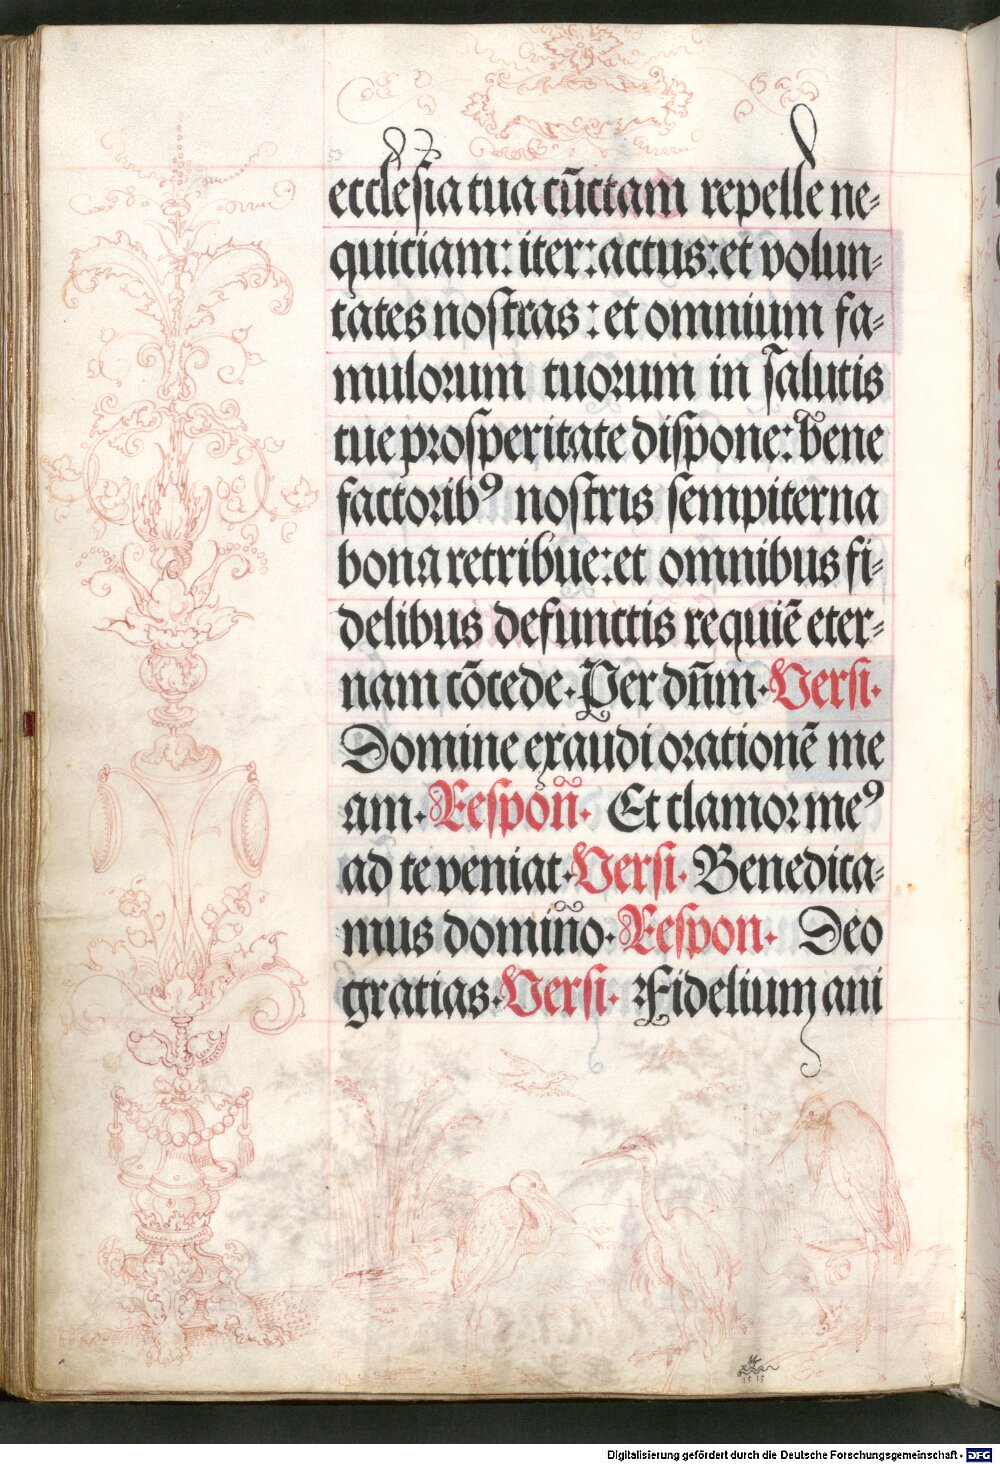 53
ecclesia tua cūctam repelle ne-
quitiam: iter: actus: et volun-
tates nostras: et omnium fa-
mulorum tuorum in salutis
tue prosperitate dispone: bene
factoribꝰ nostris sempiterna
bona retribue: et omnibus fi-
delibus defunctis requiē eter-
nam cōcede. Per dn̄m. Versi.
Domine exaudi orationē me
am. Respon̄. Et clamor meꝰ
ad te veniat. Versi. Benedica-
mus domin̄o. Respon. Deo
gratias. Versi. Fidelium ani
1515
Digitalisierung gefördert durch die Deutsche Forschungsgemeinschaft - DFG